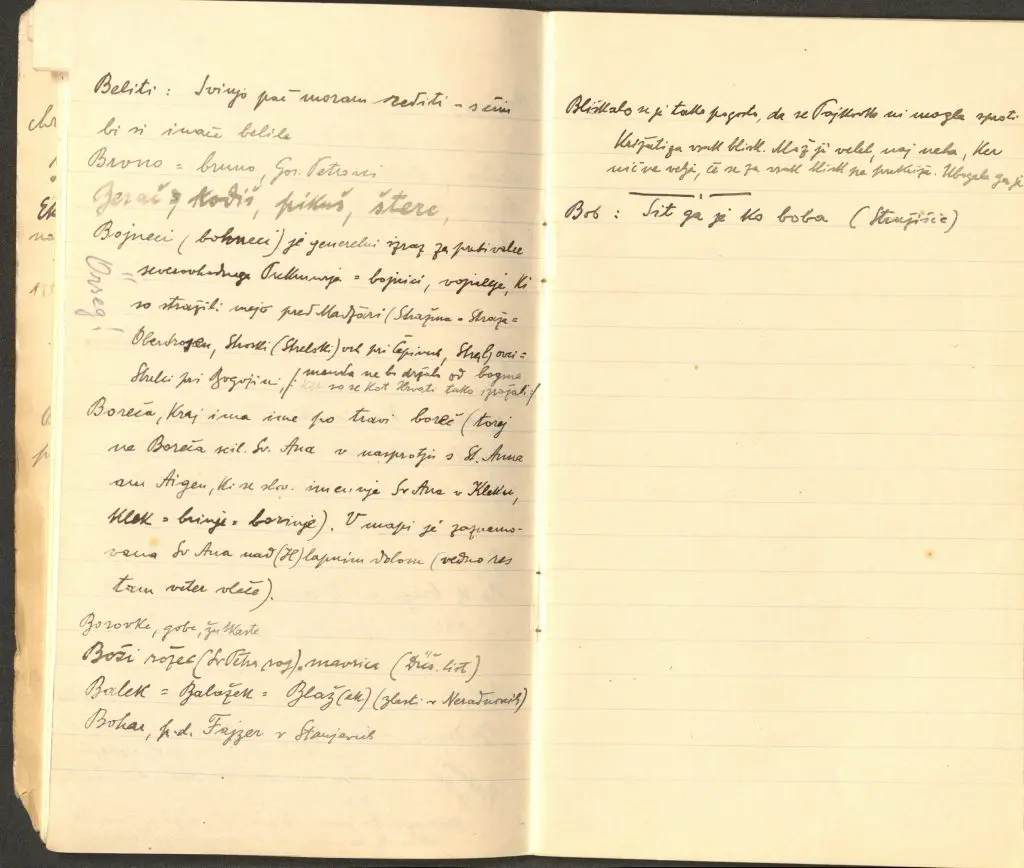 Beliti: Svinjo pač moram rediti - s čim
bi si inače belila
Brvno = bruno, Gor. Petrovci
Beraš, kodiš, pikuš, štere,
Bojneci (bohneci) je generelni izraz za prebivalce
severovhodnega Prekmurja = bojnici, vojščaje, ki
Örseg!
so stražili mejo pred Madžari (Stražna - Straža =
Oberdrosen, Strotki (Strelski) vrh pri Čepincih, Streljovci =
Strelci pri Bogojini, /: menda ne bi držalo od bogme
ker so se kot Hrvati tako izražali :/
Boreča, Kraj ima ime po travi boreč (torej
na Boreča scil. Sv. Ana v nasprotju s St. Anna
am Aigen, ki se slov. imenuje Sv Ana v Kleku,
Klek = brinje = borinje). V mapi je zaznamo-
vana Sv Ana nad (H)lapnim dolom (vedno res
tam veter vleče).
Borovke, gobe, žukaste
Boži rožec (Sv Petra rog) = mavrica (Düš. list)
Balek = Balažek = Blaž(ek) (zlasti v Neradnovcih)
Bohar, p.d. Fajzer v Stanjevcih
Bliskalo se je tako pogosto, da se Pajkovka ni mogla sproti
križati za vsak blisk. Mož je velel, naj neha, ker
nič ne velja, če se za vsak blisk ne prekriža. Ubogala ga je
Bob: Sit ga je ko boba (Stražišče)